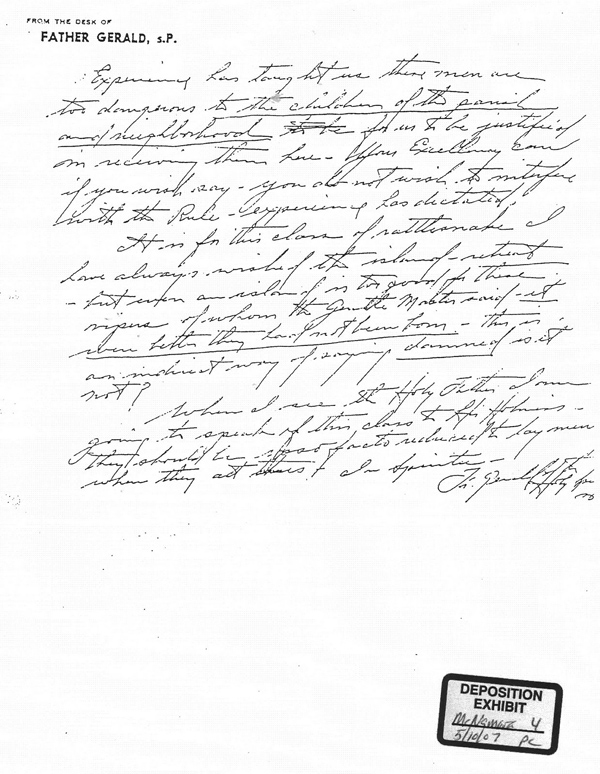 FROM THE DESK OF
FATHER GERALD, s.P.
Experience has taught us these men are
too dangerous to the children of the parish
and neighborhood for us to be justified
in receiving them here - Your Excellency can
if you wish say - you do not wish to interfere
with the Rule - experience has dictated.
It is for this class of rattlesnake I
have always wished the island retreat
- but even an island is too good for these
vipers of whom the Gentle Master said - it
were better they had not been born - this is
an indirect way of saying damned is it
not?
When I see the Holy Father I am
going to speak of this class to His Holiness -
They should be ipso facto reduced to lay men
when they act thus +
Fr. Gerald
DEPOSITION
EXHIBIT
McNamara 4
5/10/07 PC